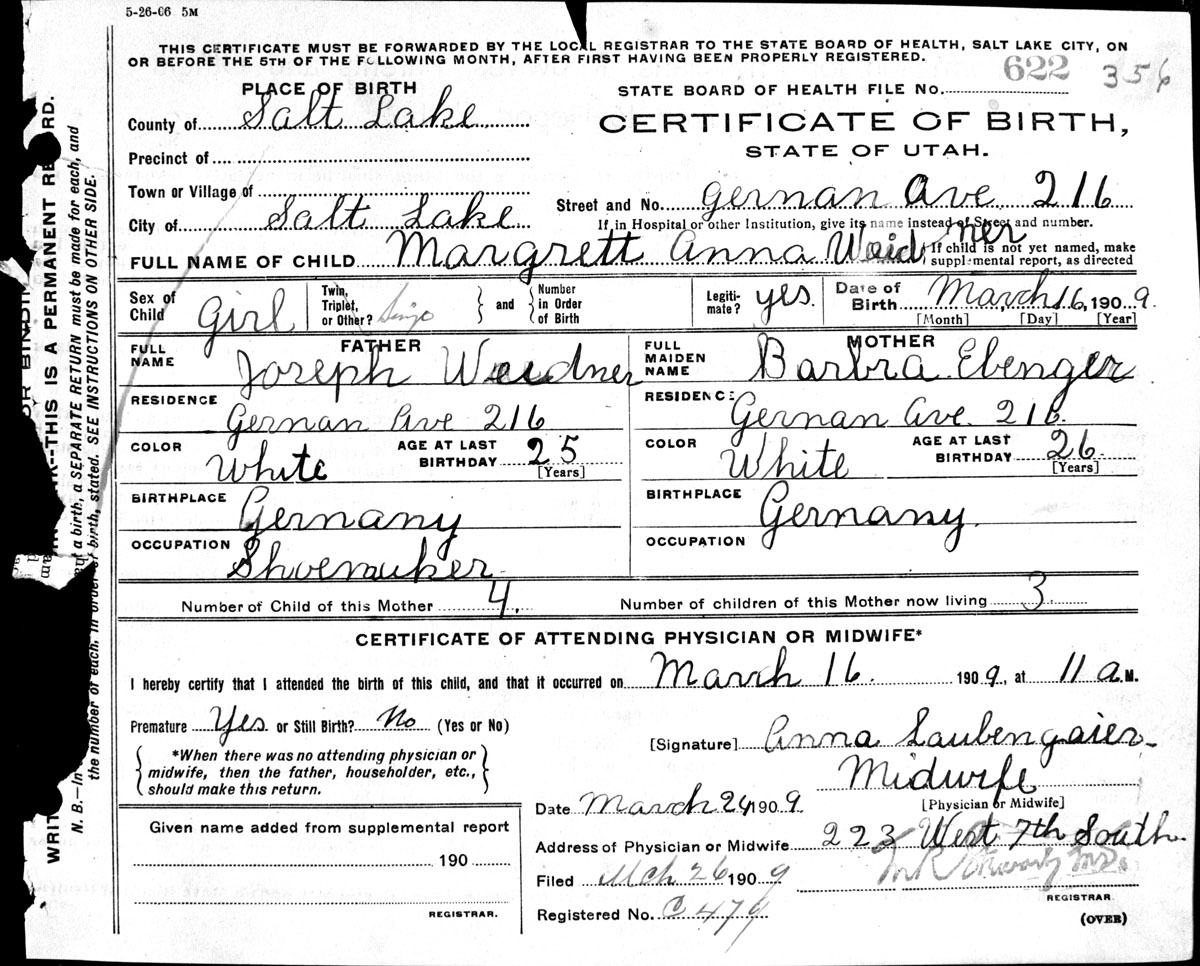 5-26-06 5M
THIS CERTIFICATE MUST BE FORWARDED BY THE LOCAL REGISTRAR TO THE STATE BOARD OF HEALTH, SALT LAKE CITY, ON
OR BEFORE THE 5TH OF THE FOLLOWING MONTH, AFTER FIRST HAVING BEEN PROPERLY REGISTERED.
622 356
PLACE OF BIRTH
STATE BOARD OF HEALTH FILE No.
County of Salt Lake
CERTIFICATE OF BIRTH,
STATE OF UTAH.
Precinct of
Town or Village of
Street and No. Gernan Ave 216
City of Salt Lake
If in Hospital or other Institution, give its name instead of Street and number.
FULL NAME OF CHILD Margrett Anna Weidner
If child is not yet named, make
supplemental report, as directed
Sex of Child Girl
Twin, Triplet, or Other?
and
Number in Order of Birth
Legiti-mate? yes.
Date of Birth March 16, 1909.
[Month] [Day] [Year]
FATHER
FULL NAME Joseph Weidner
RESIDENCE
Gernan Ave 216
COLOR White
AGE AT LAST BIRTHDAY 25
[Years]
BIRTHPLACE Gernany
OCCUPATION
Shoemuker
MOTHER
FULL MAIDEN NAME Barbra Ebenger
RESIDENCE
Gernan Ave. 216.
COLOR White
AGE AT LAST BIRTHDAY 26
[Years]
BIRTHPLACE Gernany.
OCCUPATION
Number of Child of this Mother 4.
Number of children of this Mother now living 3
CERTIFICATE OF ATTENDING PHYSICIAN OR MIDWIFE*
I hereby certify that I attended the birth of this child, and that it occurred on March 16. 1909, at 11 a.M.
Premature Yes. or Still Birth? No (Yes or No)
*When there was no attending physician or
midwife, then the father, householder, etc.,
should make this return.
[Signature] Anna Laubengaier
Midwife
[Physician or Midwife]
Date March 24, 1909
Given name added from supplemental report
190
REGISTRAR.
Address of Physician or Midwife 223 West 7th South
Filed Mch 26 1909
REGISTRAR
Registered No. C 479
(OVER)
THIS IS A PERMANENT RECORD.
a birth, a SEPARATE RETURN must be made for each, and
the number of each, in order of birth, stated. SEE INSTRUCTIONS ON OTHER SIDE.
N. B.—In